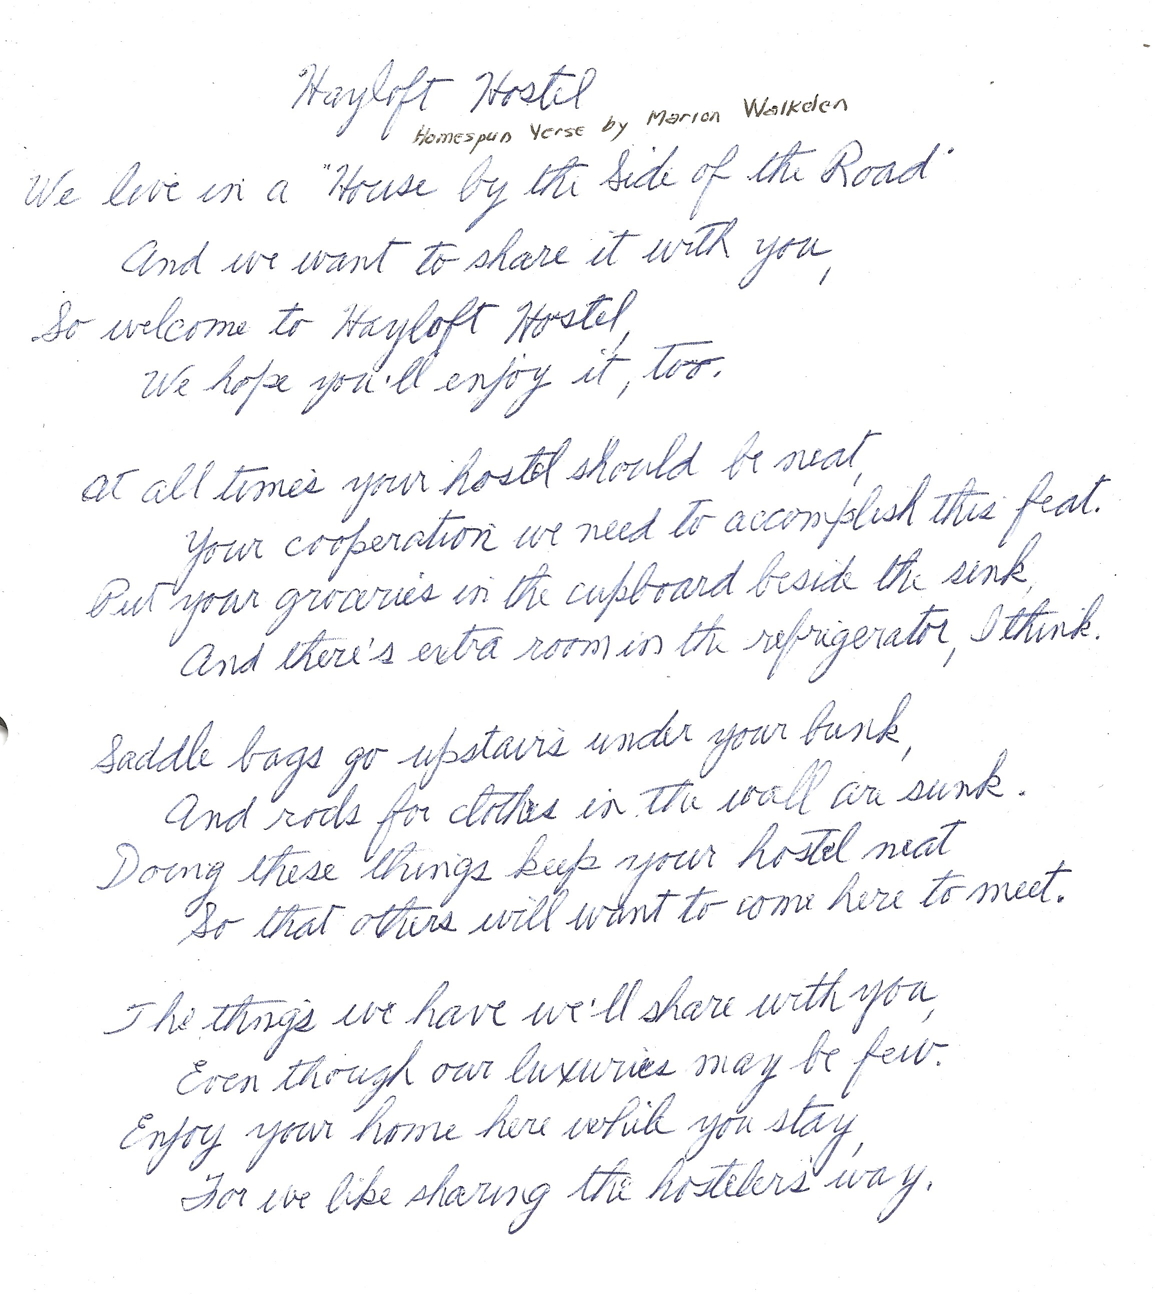 Hayloft Hostel
Homespun Verse by Marion Walkden
We live in a "House by the Side of the Road"
And we want to share it with you,
So welcome to Hayloft Hostel,
We hope you'll enjoy it, too.
At all times your hostel should be neat,
Your cooperation we need to accomplish this feat.
Put your groceries in the cupboard beside the sink,
And there's extra room in the refrigerator, I think.
Saddle bags go upstairs under your bunk,
And rods for clothes in the wall are sunk.
Doing these things keep your hostel neat
So that others will want to come here to meet.
The things we have we'll share with you,
Even though our luxuries may be few.
Enjoy your home here while you stay,
For we like sharing the hosteler's way.